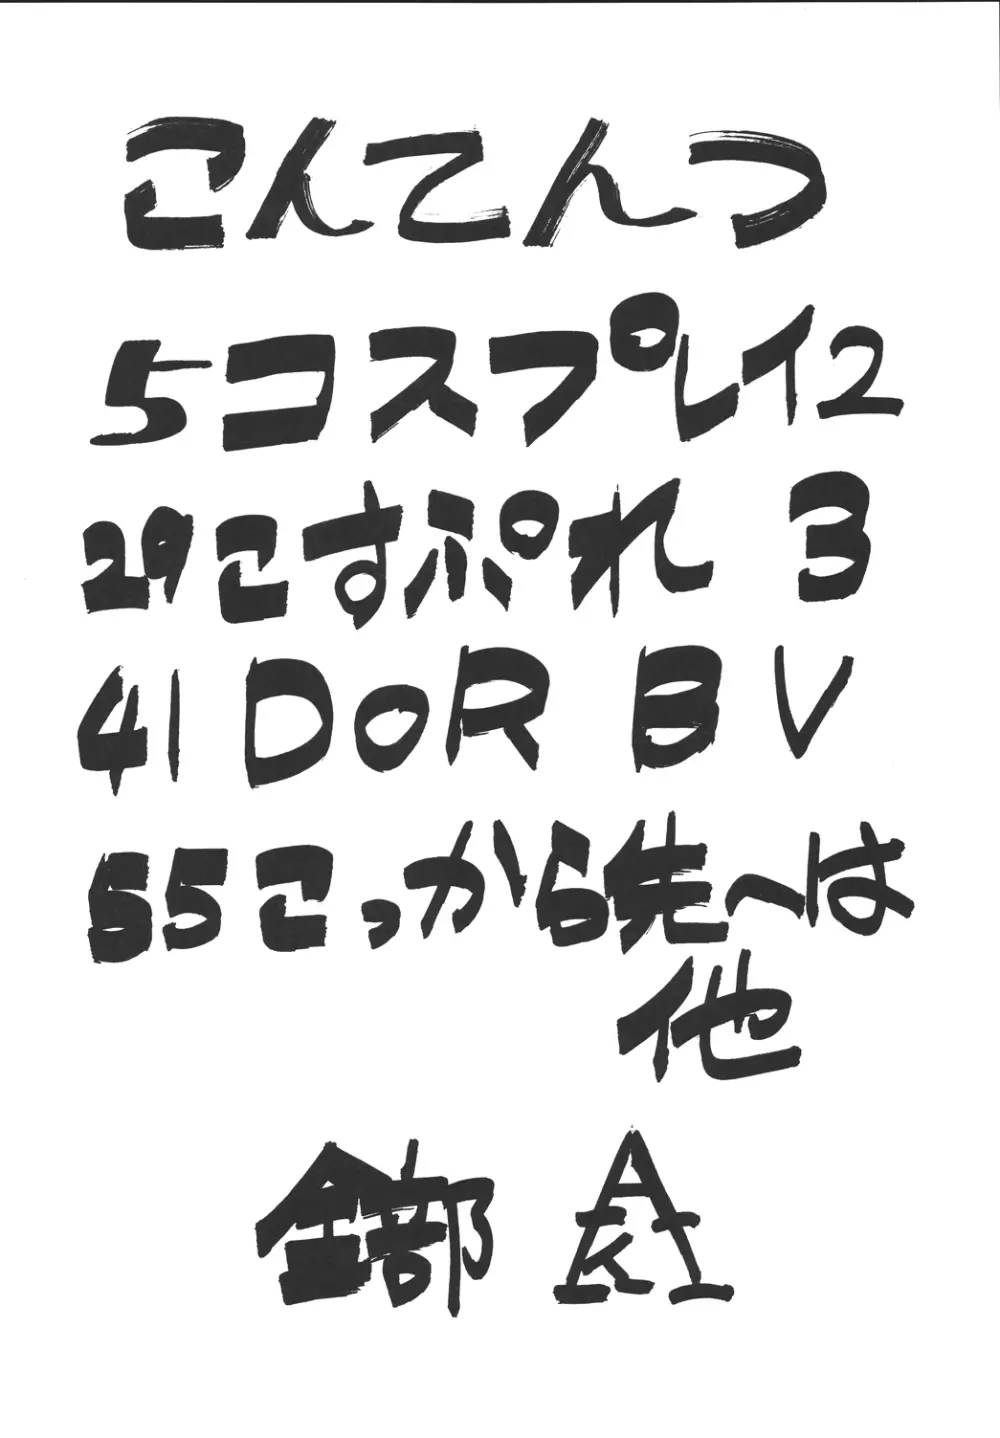 こんてんつ
5 コスプレイ2
29 こすぷれ 3
41 DoR BV
55 こっから先へは
他
全部 AKI